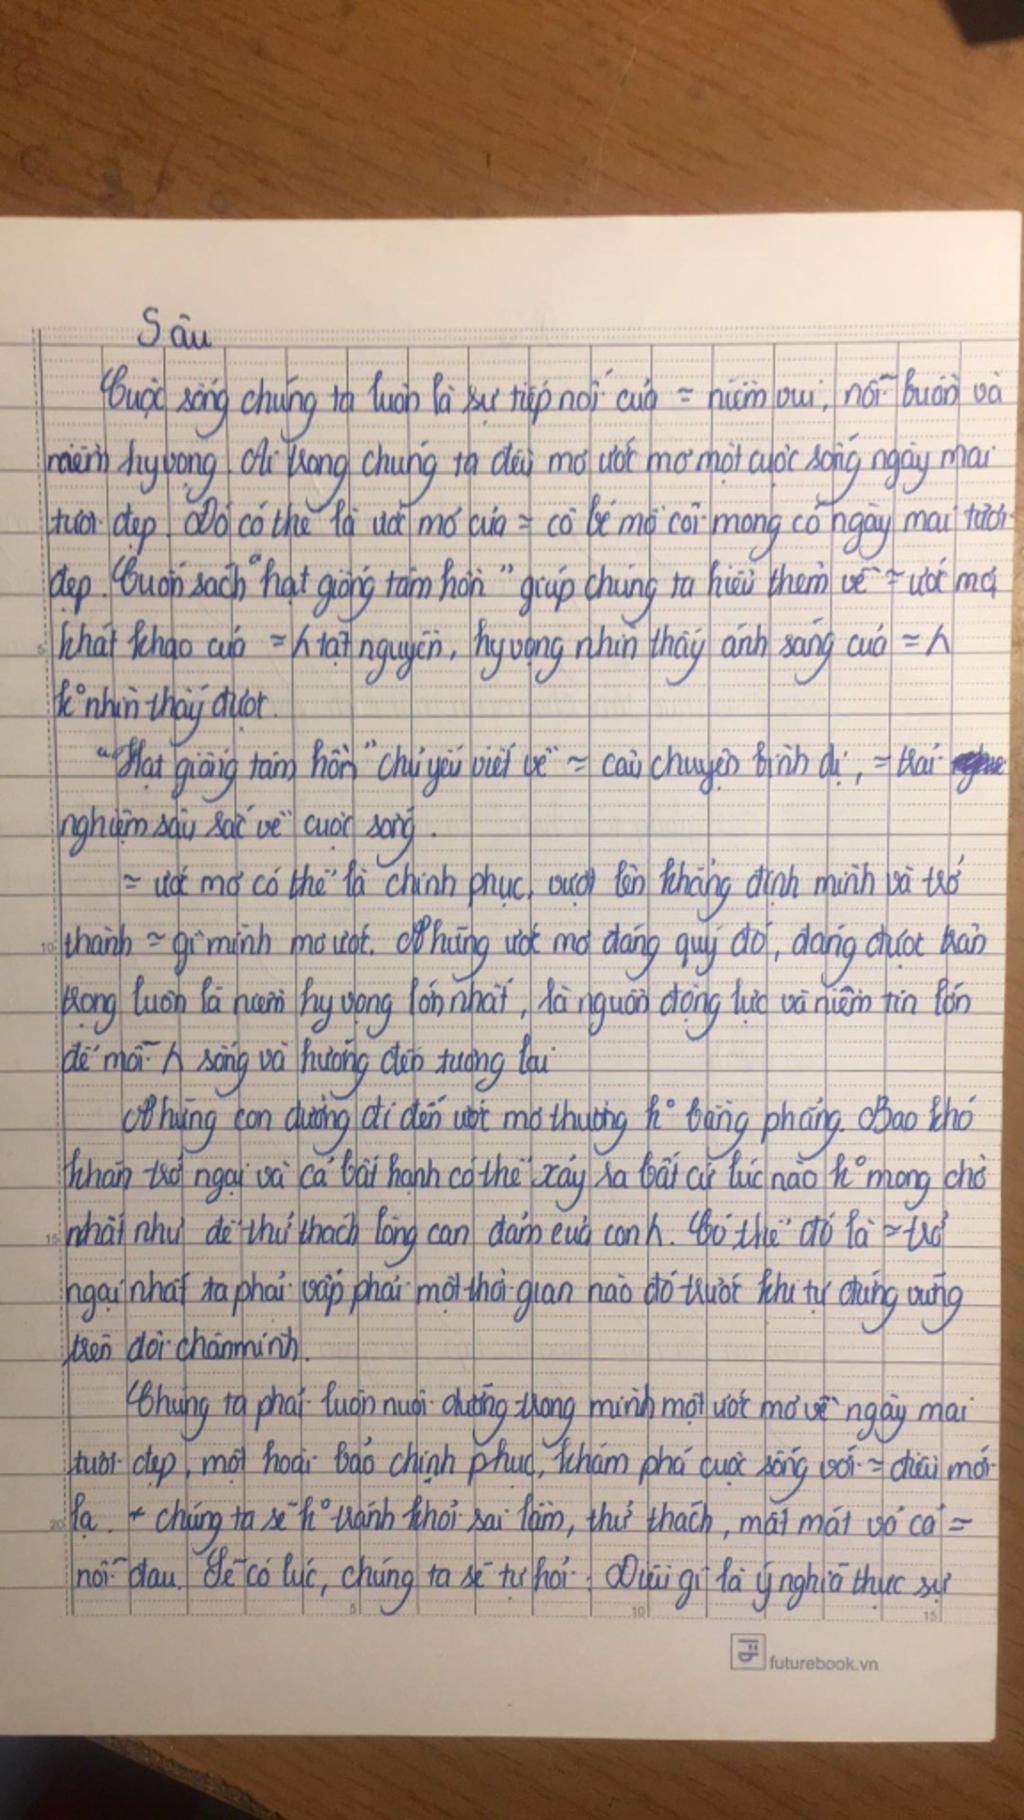 Sâu
Cuộc sống chúng ta luôn là sự tiếp nối của = niềm vui, nỗi buồn và
niềm hy vọng. Ai trong chúng ta đều mơ ước mơ một cuộc sống ngày mai
tươi đẹp. Đó có thể là ước mơ của = cô bé mồ côi mong có ngày mai tươi
đẹp. Cuốn sách "hạt giống tâm hồn" giúp chúng ta hiểu thêm về = ước mơ,
khát khao của = h tật nguyền, hy vọng nhìn thấy ánh sáng của = h
k° nhìn thấy được.
"Hạt giống tâm hồn" chủ yếu viết về = câu chuyện bình dị, = trải
nghiệm sâu sắc về cuộc sống.
= ước mơ có thể là chinh phục, vượt lên khẳng định mình và trở
thành = gì mình mơ ước. Những ước mơ đáng quý đó, đáng được trân
trọng luôn là niềm hy vọng lớn nhất, là nguồn động lực và niềm tin lớn
để mỗi h sống và hướng đến tương lai
Những con đường đi đến ước mơ thường k° bằng phẳng. Bao khó
khăn trở ngại và cả bất hạnh có thể xảy ra bất cứ lúc nào k° mong chờ
nhất như để thử thách lòng can đảm của con h. Có thể đó là = trở
ngại nhất ta phải vấp phải một thời gian nào đó trước khi tự đứng vững
trên đôi chân mình.
Chúng ta phải luôn nuôi dưỡng trong mình một ước mơ về ngày mai
tươi đẹp, một hoài bão chinh phục, khám phá cuộc sống với = điều mới
lạ. + chúng ta sẽ k° tránh khỏi sai lầm, thử thách, mất mát và cả =
nỗi đau. Sẽ có lúc, chúng ta sẽ tự hỏi: Điều gì là ý nghĩa thực sự
futurebook.vn